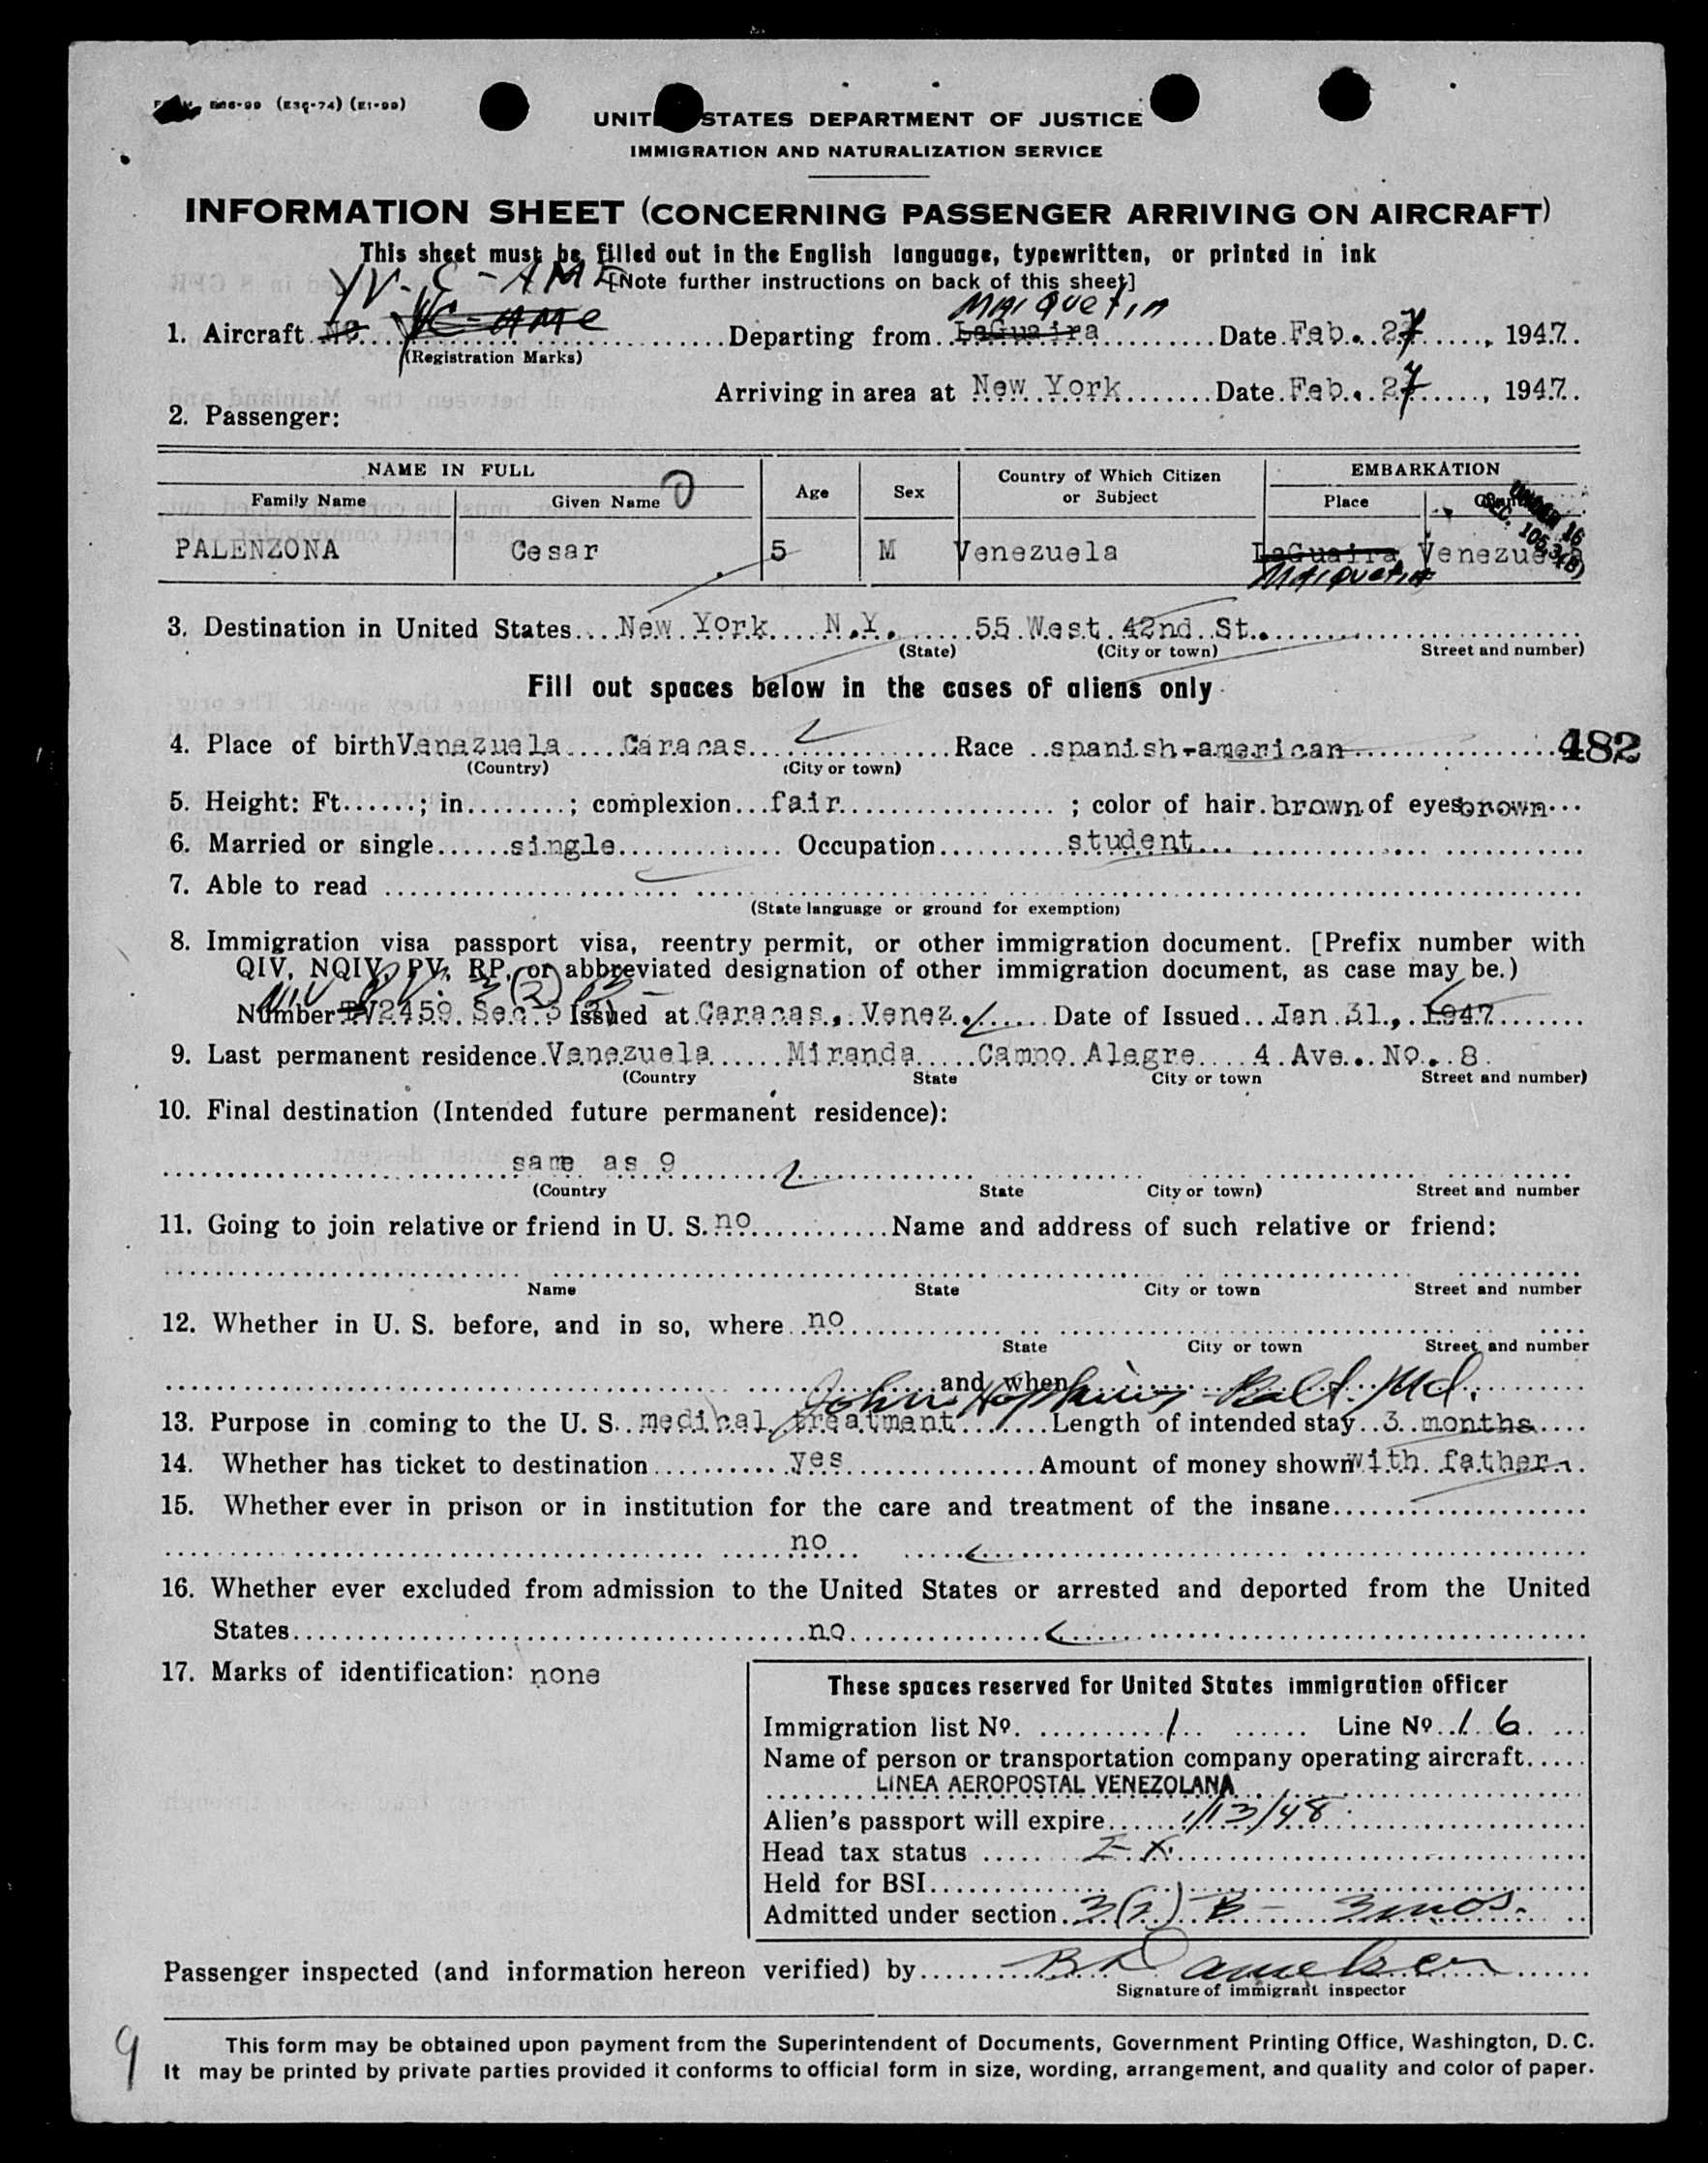 (E3C-74) (E1-99)
UNITED STATES DEPARTMENT OF JUSTICE
IMMIGRATION AND NATURALIZATION SERVICE
INFORMATION SHEET (CONCERNING PASSENGER ARRIVING ON AIRCRAFT)
This sheet must be filled out in the English language, typewritten, or printed in ink
YV-C-AME [Note further instructions on back of this sheet]
Maiquetia
1. Aircraft No. YC-AME Departing from LaGuaira Date Feb. 27, 1947.
(Registration Marks)
Arriving in area at New York Date Feb. 27, 1947.
2. Passenger:
NAME IN FULL Age Sex Country of Which Citizen or Subject EMBARKATION
Family Name Given Name Place
UNDER 16 SEC. 105.3(B)
PALENZONA Cesar 5 M Venezuela LaGuaira Venezuela
Maiquetia
3. Destination in United States New York N.Y. 55 West 42nd St.
(State) (City or town) Street and number)
Fill out spaces below in the cases of aliens only
4. Place of birth Venazuela Caracas Race spanish-american 482
(Country) (City or town)
5. Height: Ft......; in........; complexion fair ; color of hair brown of eyes brown
6. Married or single single Occupation student
7. Able to read
(State language or ground for exemption)
8. Immigration visa passport visa, reentry permit, or other immigration document. [Prefix number with
QIV, NQIV, PV, RP, or abbreviated designation of other immigration document, as case may be.)
NIV PV. 3(2) B
Number PV2459 Sec. 3 (2) Issued at Caracas, Venez. Date of Issued Jan 31, 1947
9. Last permanent residence Venezuela Miranda Campo Alegre 4 Ave. No. 8
(Country State City or town Street and number)
10. Final destination (Intended future permanent residence):
same as 9
(Country State City or town) Street and number
11. Going to join relative or friend in U. S. no Name and address of such relative or friend:
Name State City or town Street and number
12. Whether in U. S. before, and in so, where no
State City or town Street and number
and when
Johns Hopkins Balt. Md.
13. Purpose in coming to the U. S. medical treatment Length of intended stay 3 months
14. Whether has ticket to destination yes Amount of money shown with father
15. Whether ever in prison or in institution for the care and treatment of the insane
no
16. Whether ever excluded from admission to the United States or arrested and deported from the United
States no
17. Marks of identification: none
These spaces reserved for United States immigration officer
Immigration list No. 1 Line No. 16
Name of person or transportation company operating aircraft
LINEA AEROPOSTAL VENEZOLANA
Alien's passport will expire 1/13/48
Head tax status EX.
Held for BSI
Admitted under section 3(2) B - 3 mos.
Passenger inspected (and information hereon verified) by
Signature of immigrant inspector
This form may be obtained upon payment from the Superintendent of Documents, Government Printing Office, Washington, D. C.
It may be printed by private parties provided it conforms to official form in size, wording, arrangement, and quality and color of paper.
9